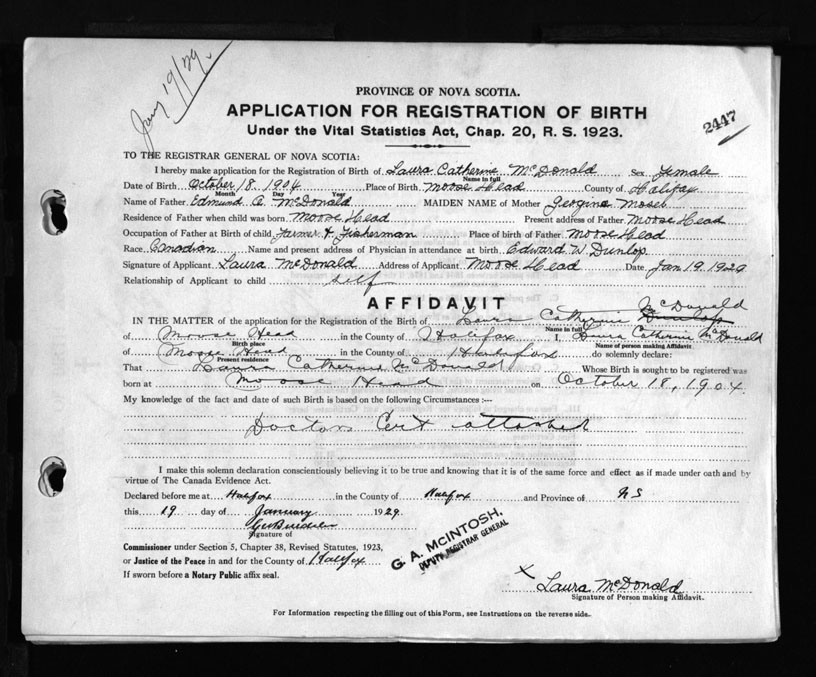 Jany 19/29.
PROVINCE OF NOVA SCOTIA.
APPLICATION FOR REGISTRATION OF BIRTH
Under the Vital Statistics Act, Chap. 20, R. S. 1923.
2447
TO THE REGISTRAR GENERAL OF NOVA SCOTIA:
I hereby make application for the Registration of Birth of Laura Catherine McDonald Sex Female
Name in full
Date of Birth October 18. 1904 Place of Birth Moose Head County of Halifax
Month Day Year
Name of Father Edmund A. McDonald MAIDEN NAME of Mother Georgina Moser
Residence of Father when child was born Moose Head Present address of Father Moose Head
Occupation of Father at Birth of child Farmer & Fisherman Place of birth of Father Moose Head
Race Canadian Name and present address of Physician in attendance at birth Edward W. Dunlop
Signature of Applicant Laura McDonald Address of Applicant Moose Head Date Jan 19 1929
Relationship of Applicant to child self
AFFIDAVIT
McDonald
IN THE MATTER of the application for the Registration of the Birth of Laura Catherine Dunlop
Name in full
of Moose Head in the County of Halifax I, Laura Catherine McDonald
Birth place Name of person making Affidavit
of Moose Head in the County of Halifax do solemnly declare:
Present residence
That Laura Catherine McDonald Whose Birth is sought to be registered was
born at Moose Head on October 18, 1904.
My knowledge of the fact and date of such Birth is based on the following Circumstances :—
Doctors Cert attached
I make this solemn declaration conscientiously believing it to be true and knowing that it is of the same force and effect as if made under oath and by
virtue of The Canada Evidence Act.
Declared before me at Halifax in the County of Halifax and Province of N S
this 19 day of January 1929
Signature of
G. A. McINTOSH,
DEPUTY REGISTRAR GENERAL
Commissioner under Section 5, Chapter 38, Revised Statutes, 1923,
or Justice of the Peace in and for the County of Halifax
If sworn before a Notary Public affix seal.
x Laura McDonald
Signature of Person making Affidavit.
For Information respecting the filling out of this Form, see Instructions on the reverse side.